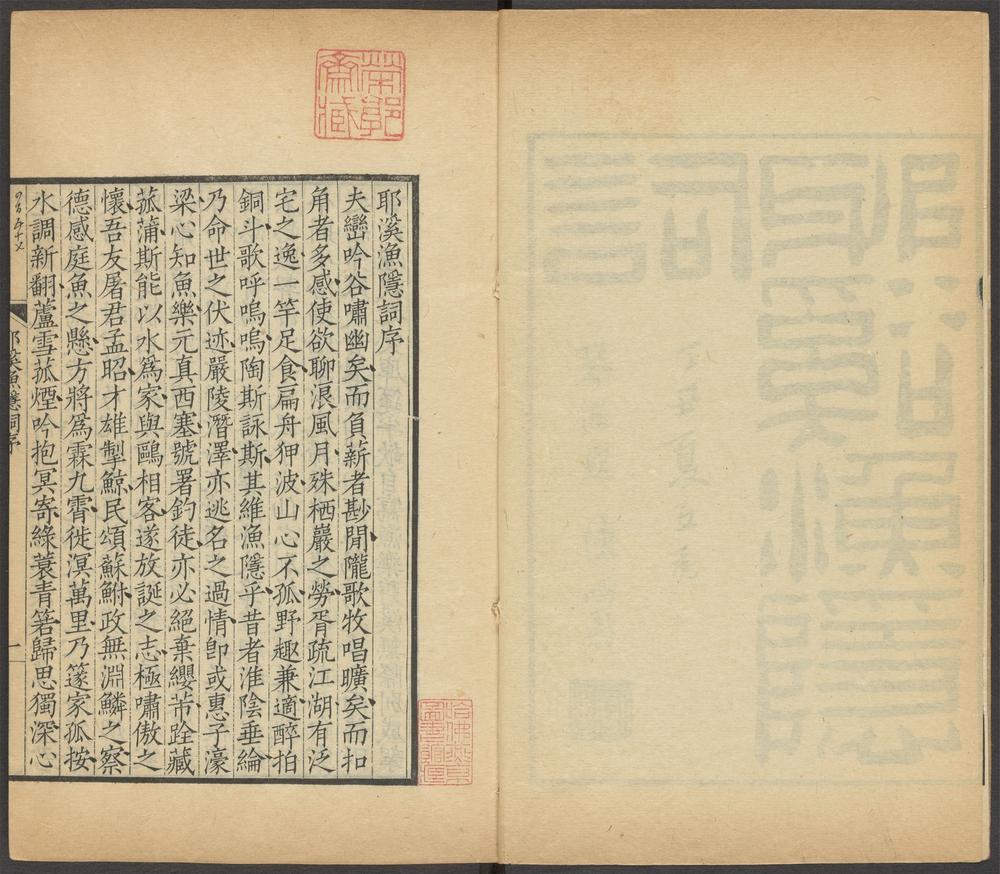 耶溪漁隱詞序
夫巒吟谷嘯幽矣而負薪者尠聞隴歌牧唱曠矣而扣
角者多感使欲聊浪風月殊栖巖之勞胥疏江湖有泛
宅之逸一竿足食扁舟狎波山心不孤野趣兼適醉拍
銅斗歌呼嗚嗚陶斯詠斯其維漁隱乎昔者淮陰垂綸
乃命世之伏迹嚴陵潛澤亦逃名之過情卽或惠子濠
梁心知魚樂元真西塞號署釣徒亦必絕棄纓芾跧藏
菰蒲斯能以水爲家與鷗相客遂放誕之志極嘯傲之
懷吾友屠君孟昭才雄掣鯨民頌蘇鮒政無淵鱗之察
德感庭魚之懸方將爲霖九霄徙溟萬里乃篴家孤按
水調新翻蘆雪菰煙吟抱冥寄綠蓑青箬歸思獨深心
耶溪漁隱詞序
一